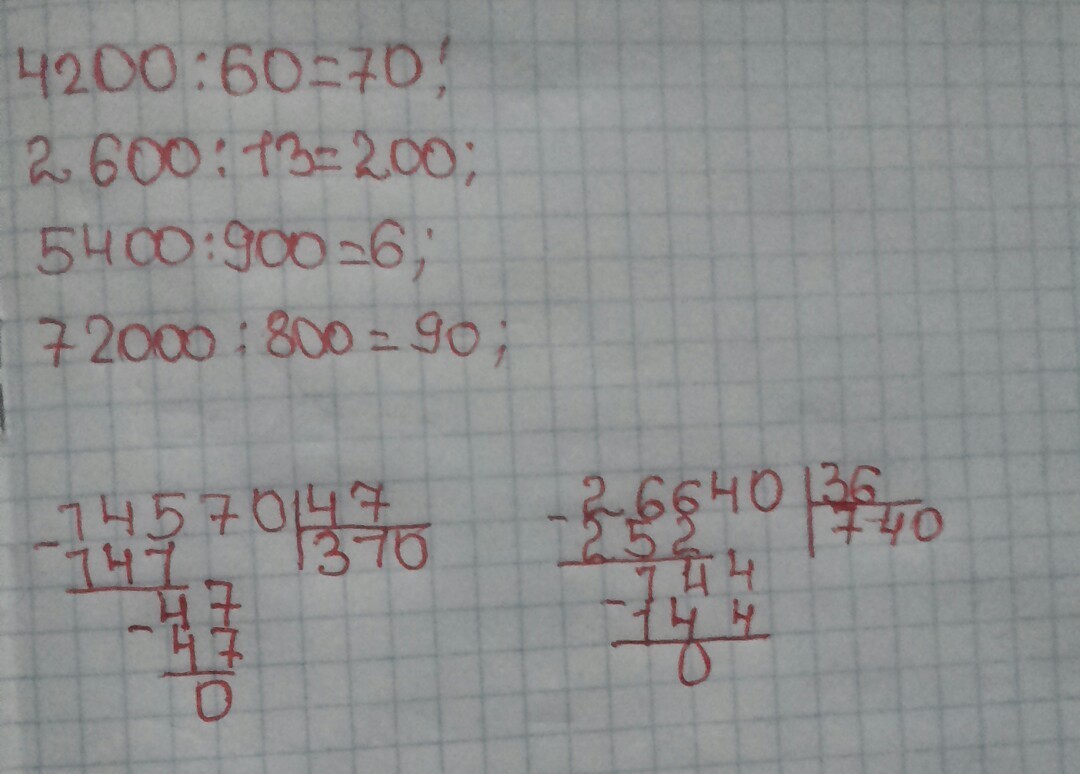 4200:60=70;
2600:13=200;
5400:900=6;
72000:800=90;
-14570|47
141|310
-47
47
0
-26640|36
252|740
-144
144
0